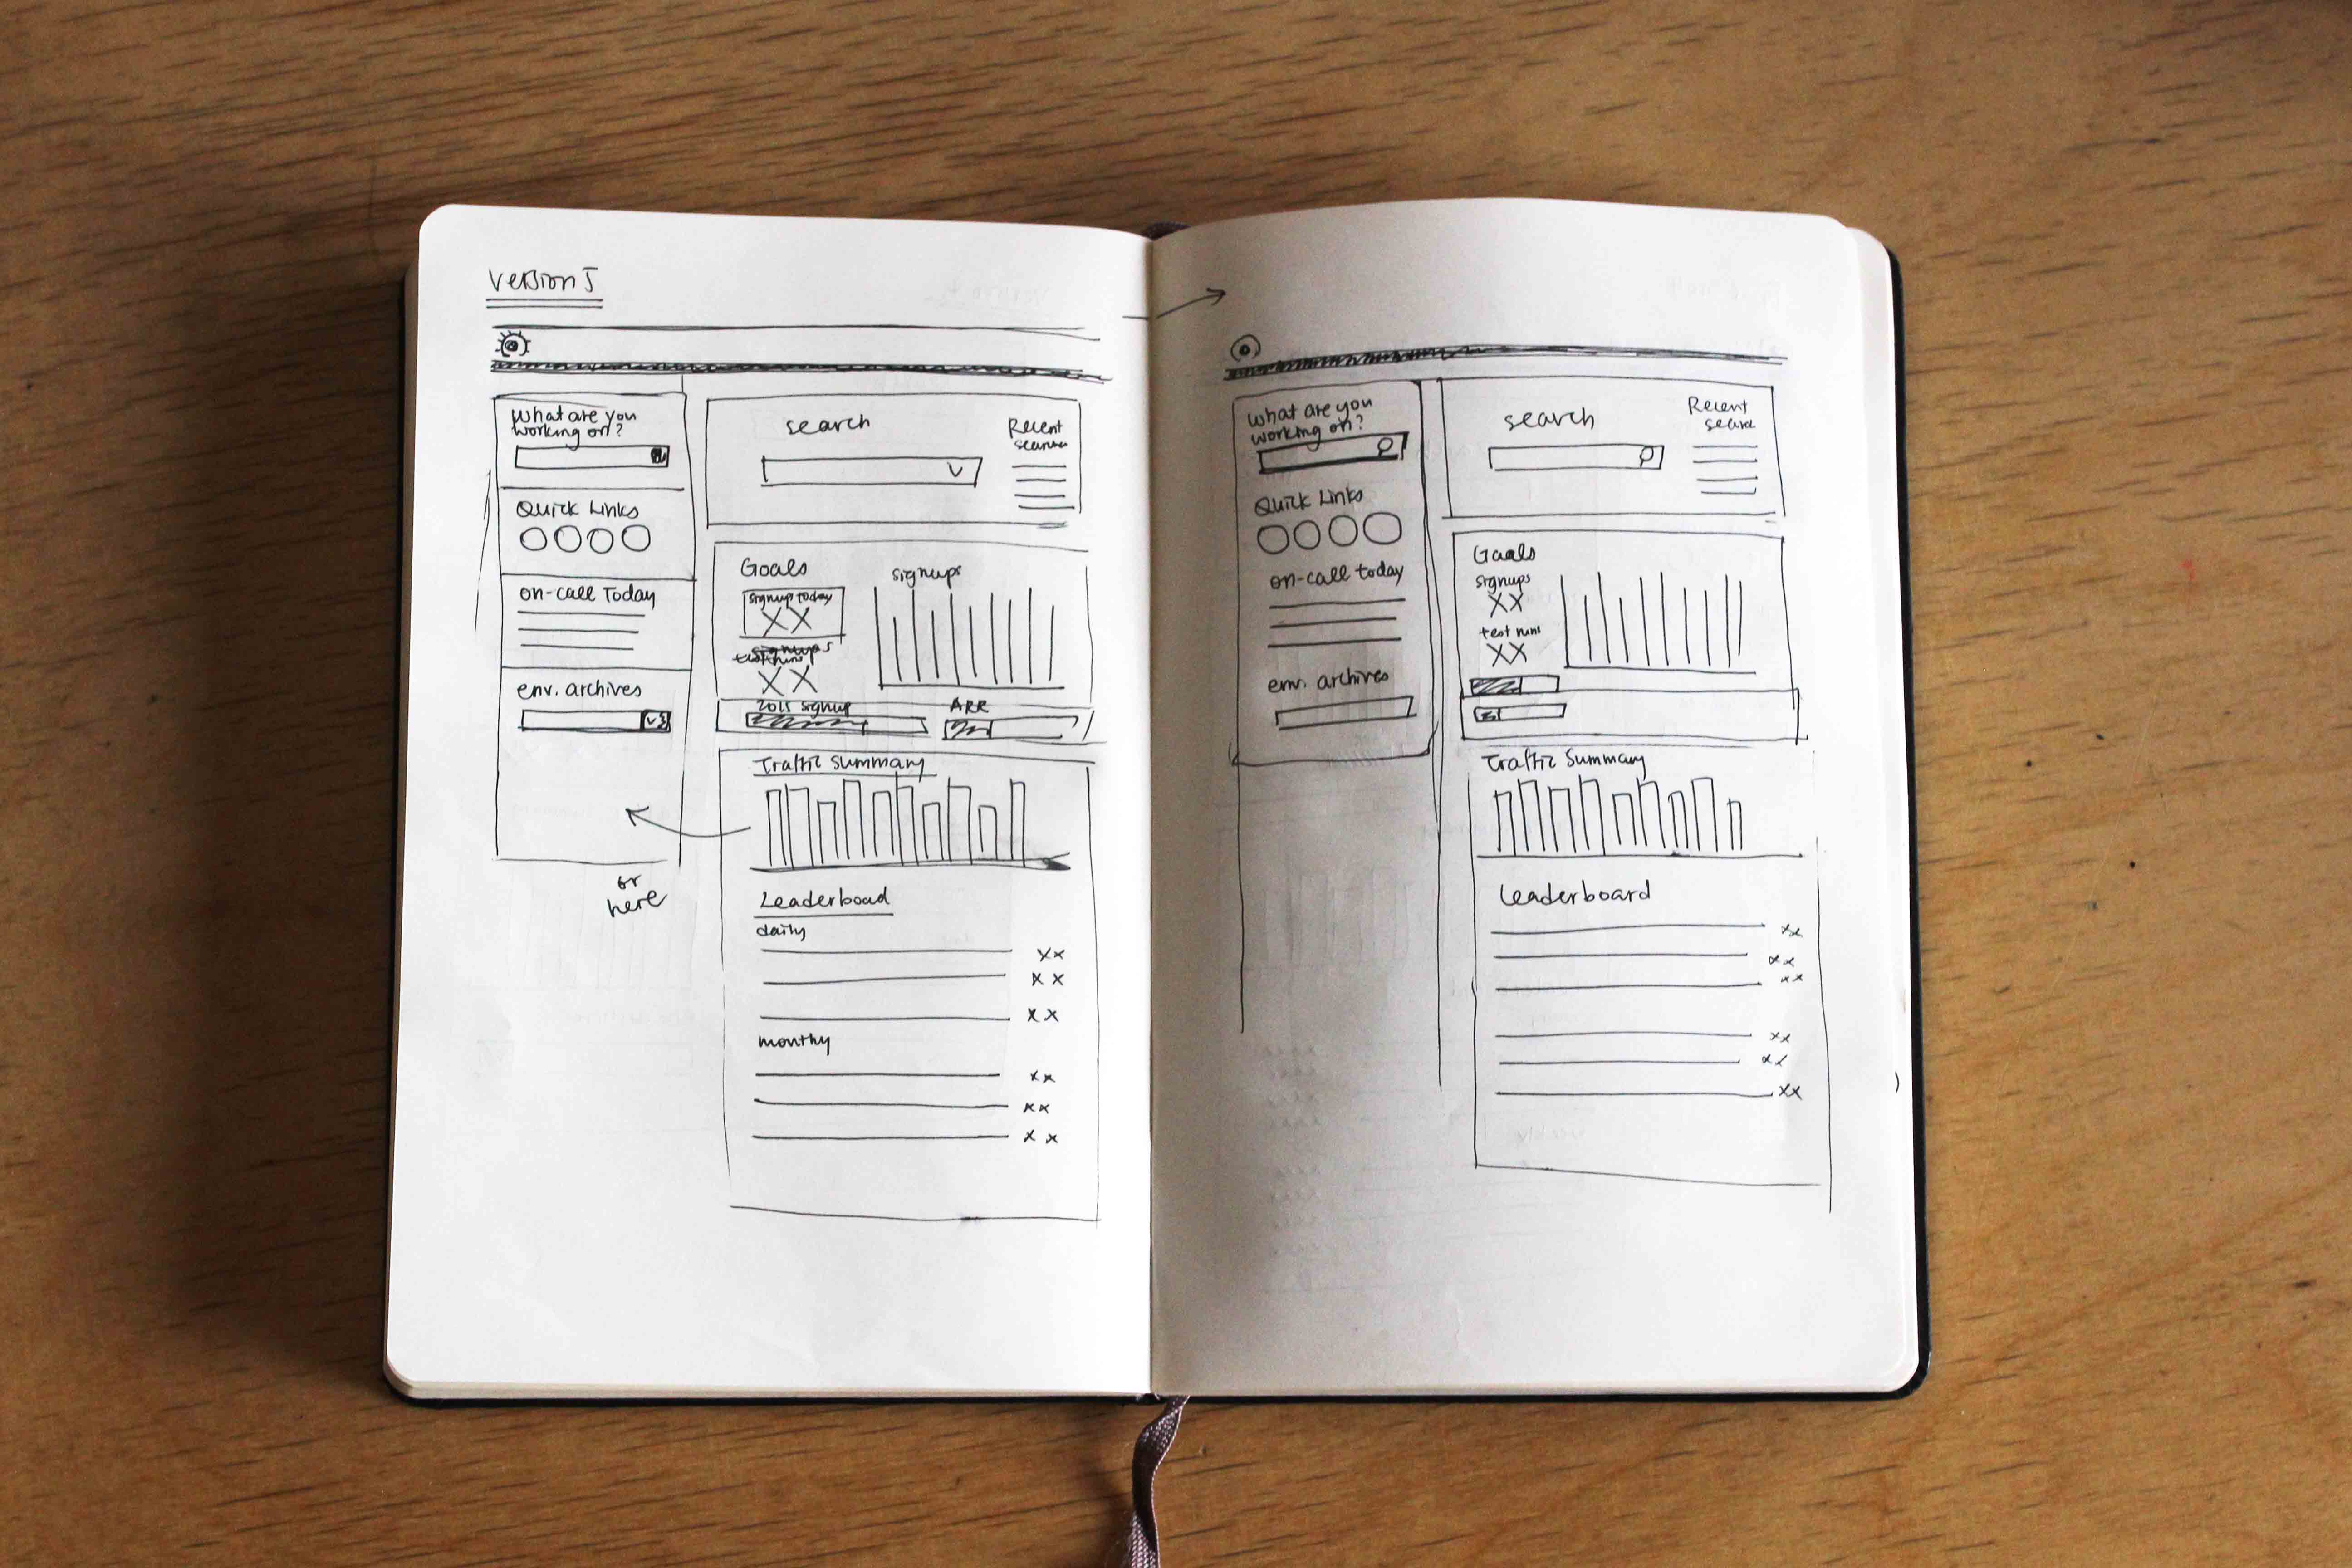 Version 5
What are you
working on?
Quick Links
on-call Today
env. archives
or
here
search
Recent
Goals
signup today
XX
XX
signups
2015 signup
ARR
Traffic Summary
Leaderboad
daily
xx
xx
xx
monthy
xx
xx
xx
What are you
working on?
Quick Links
on-call today
env. archives
search
Recent
Goals
signups
XX
test runs
XX
Traffic Summary
Leaderboard
xx
xx
xx
xx
xx
xx